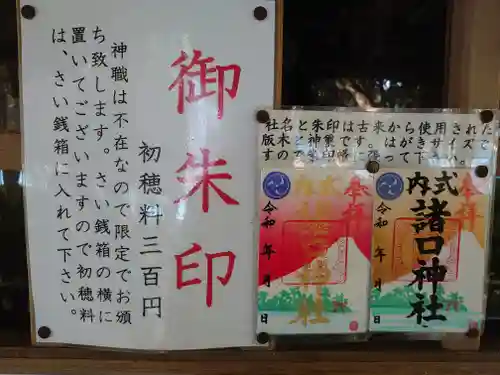 御朱印
初穂料三百円
神職は不在なので限定でお頒
ち致します。さい銭箱の横に
置いてございますので初穂料
は、さい銭箱に入れて下さい。
社名と朱印は古来から使用された
版木と神璽です。はがきサイズで
すので
下さい。
奉拝
式内
諸口神社
令和 年 月 日
奉拝
式内
諸口神社
令和 年 月 日